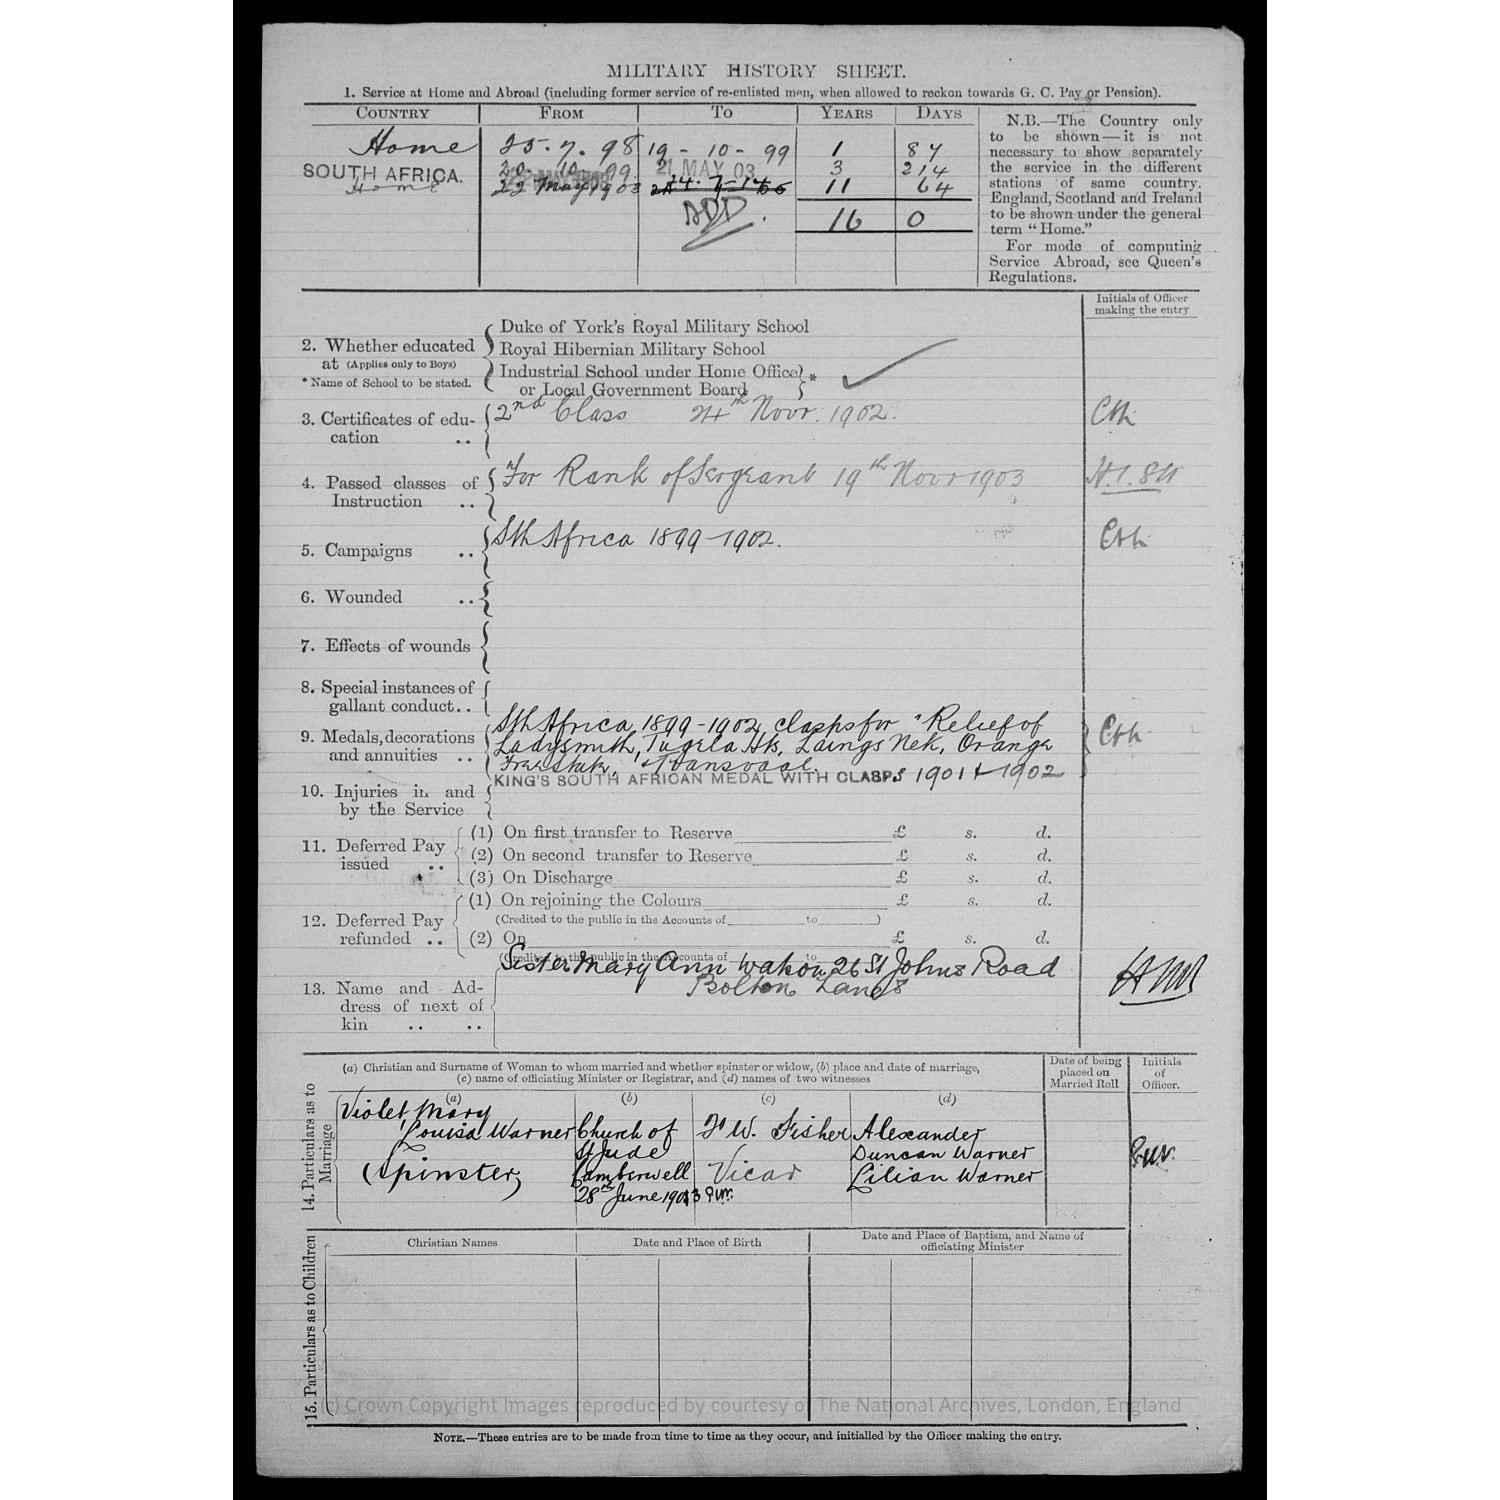 MILITARY HISTORY SHEET.
1. Service at Home and Abroad (including former service of re-enlisted men, when allowed to reckon towards G. C. Pay or Pension).
COUNTRY FROM TO YEARS DAYS
Home 25. 7. 98 19 - 10 - 99 1 87
SOUTH AFRICA. 20. 10. 99 21 MAY 03 3 214
Home 22 May 1903 11 64
ADD. 16 0
N.B.—The Country only
to be shown—it is not
necessary to show separately
the service in the different
stations of same country.
England, Scotland and Ireland
to be shown under the general
term "Home."
For mode of computing
Service Abroad, see Queen's
Regulations.
Initials of Officer
making the entry
2. Whether educated
at (Applies only to Boys)
* Name of School to be stated.
Duke of York's Royal Military School
Royal Hibernian Military School
Industrial School under Home Office
or Local Government Board *
3. Certificates of edu-
cation ..
2nd Class 24th Novr. 1902.
4. Passed classes of
Instruction ..
For Rank of Sergeant 19th Novr 1903
5. Campaigns ..
Sth Africa 1899-1902.
6. Wounded ..
7. Effects of wounds
8. Special instances of
gallant conduct..
9. Medals, decorations
and annuities ..
Sth Africa 1899-1902 clasps for "Relief of
Ladysmith, Tugela Hts, Laings Nek, Orange
Free State, & Transvaal.
KING'S SOUTH AFRICAN MEDAL WITH CLASPS 1901 & 1902
10. Injuries in and
by the Service
11. Deferred Pay
issued ..
(1) On first transfer to Reserve £ s. d.
(2) On second transfer to Reserve £ s. d.
(3) On Discharge £ s. d.
12. Deferred Pay
refunded ..
(1) On rejoining the Colours £ s. d.
(Credited to the public in the Accounts of to )
(2) On £ s. d.
(Credited to the public in the Accounts of to
13. Name and Ad-
dress of next of
kin .. ..
Sister Mary Ann Watson 26 St Johns Road
Bolton Lancs
14. Particulars as to
Marriage
(a) Christian and Surname of Woman to whom married and whether spinster or widow, (b) place and date of marriage,
(c) name of officiating Minister or Registrar, and (d) names of two witnesses
Date of being
placed on
Married Roll
Initials
of
Officer.
(a) (b) (c) (d)
Violet Mary
Louisa Warner
(Spinster)
Church of
St Jude
Camberwell
28th June 1903
F W. Fisher
Vicar
Alexander
Duncan Warner
Lilian Warner
15. Particulars as to Children
Christian Names Date and Place of Birth Date and Place of Baptism, and Name of
officiating Minister
(c) Crown Copyright Images reproduced by courtesy of The National Archives, London, England
NOTE.—These entries are to be made from time to time as they occur, and initialled by the Officer making the entry.